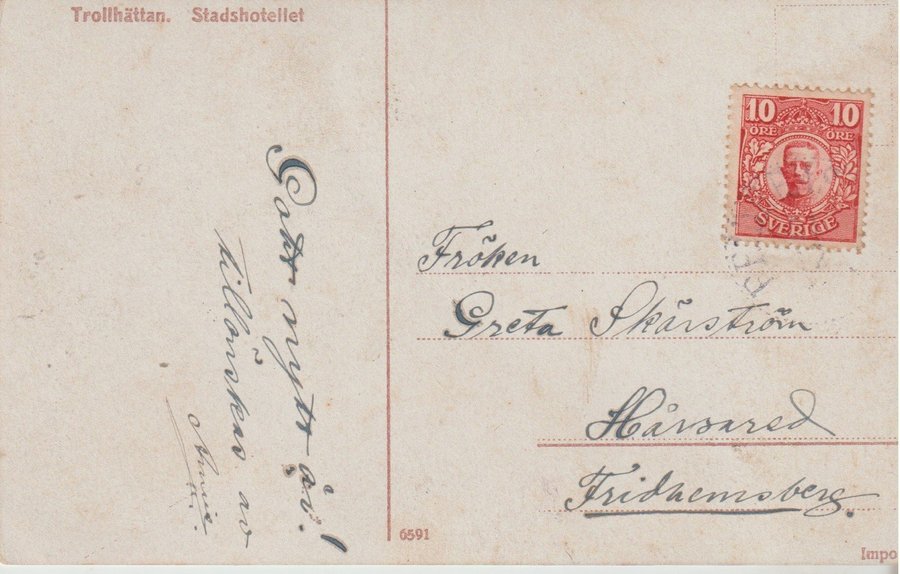 Trollhättan. Stadshotellet
Gott nytt år!
tillönskas av
Annie
10 10
ÖRE ÖRE
SVERIGE
Fröken
Greta Skårström
Hårsared
Fridhemsberg.
6591
Impo